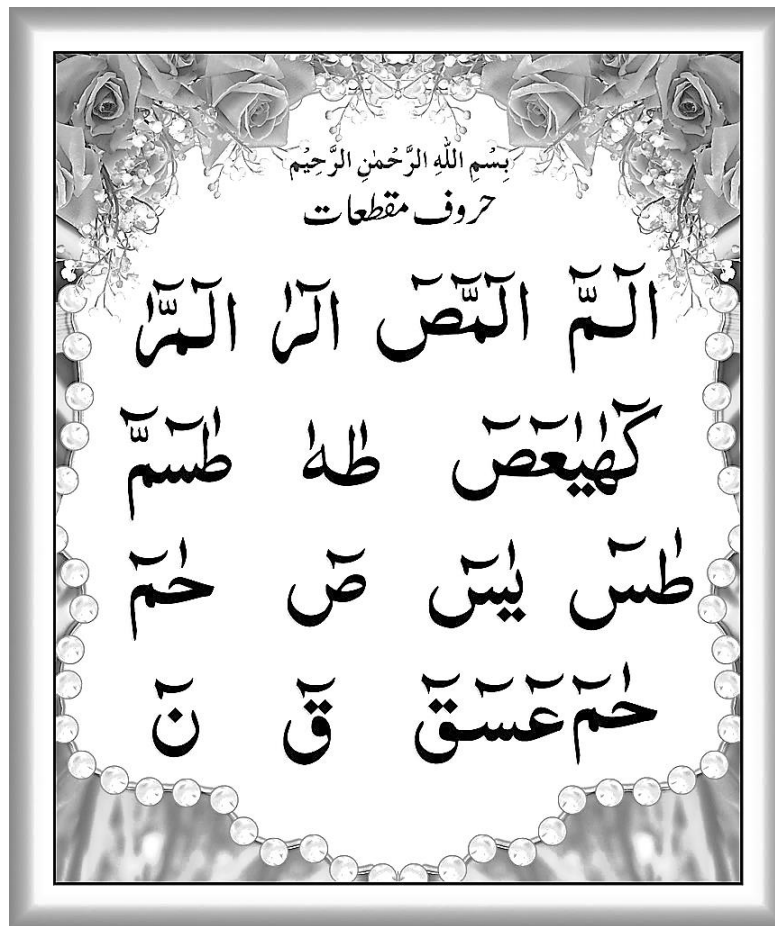 بِسْمِ اللّٰهِ الرَّحْمٰنِ الرَّحِیْمِ
حروف مقطعات
الٓمّٓ الٓمّٓصٓ الٓرٰ الٓمّٓرٰ
كٓهٰیٰعٓصٓ طٰهٰ طٰسٓمّٓ
طٰسٓ یٰسٓ صٓ حٰمٓ
حٰمٓ عٓسٓقٓ قٓ نٓ